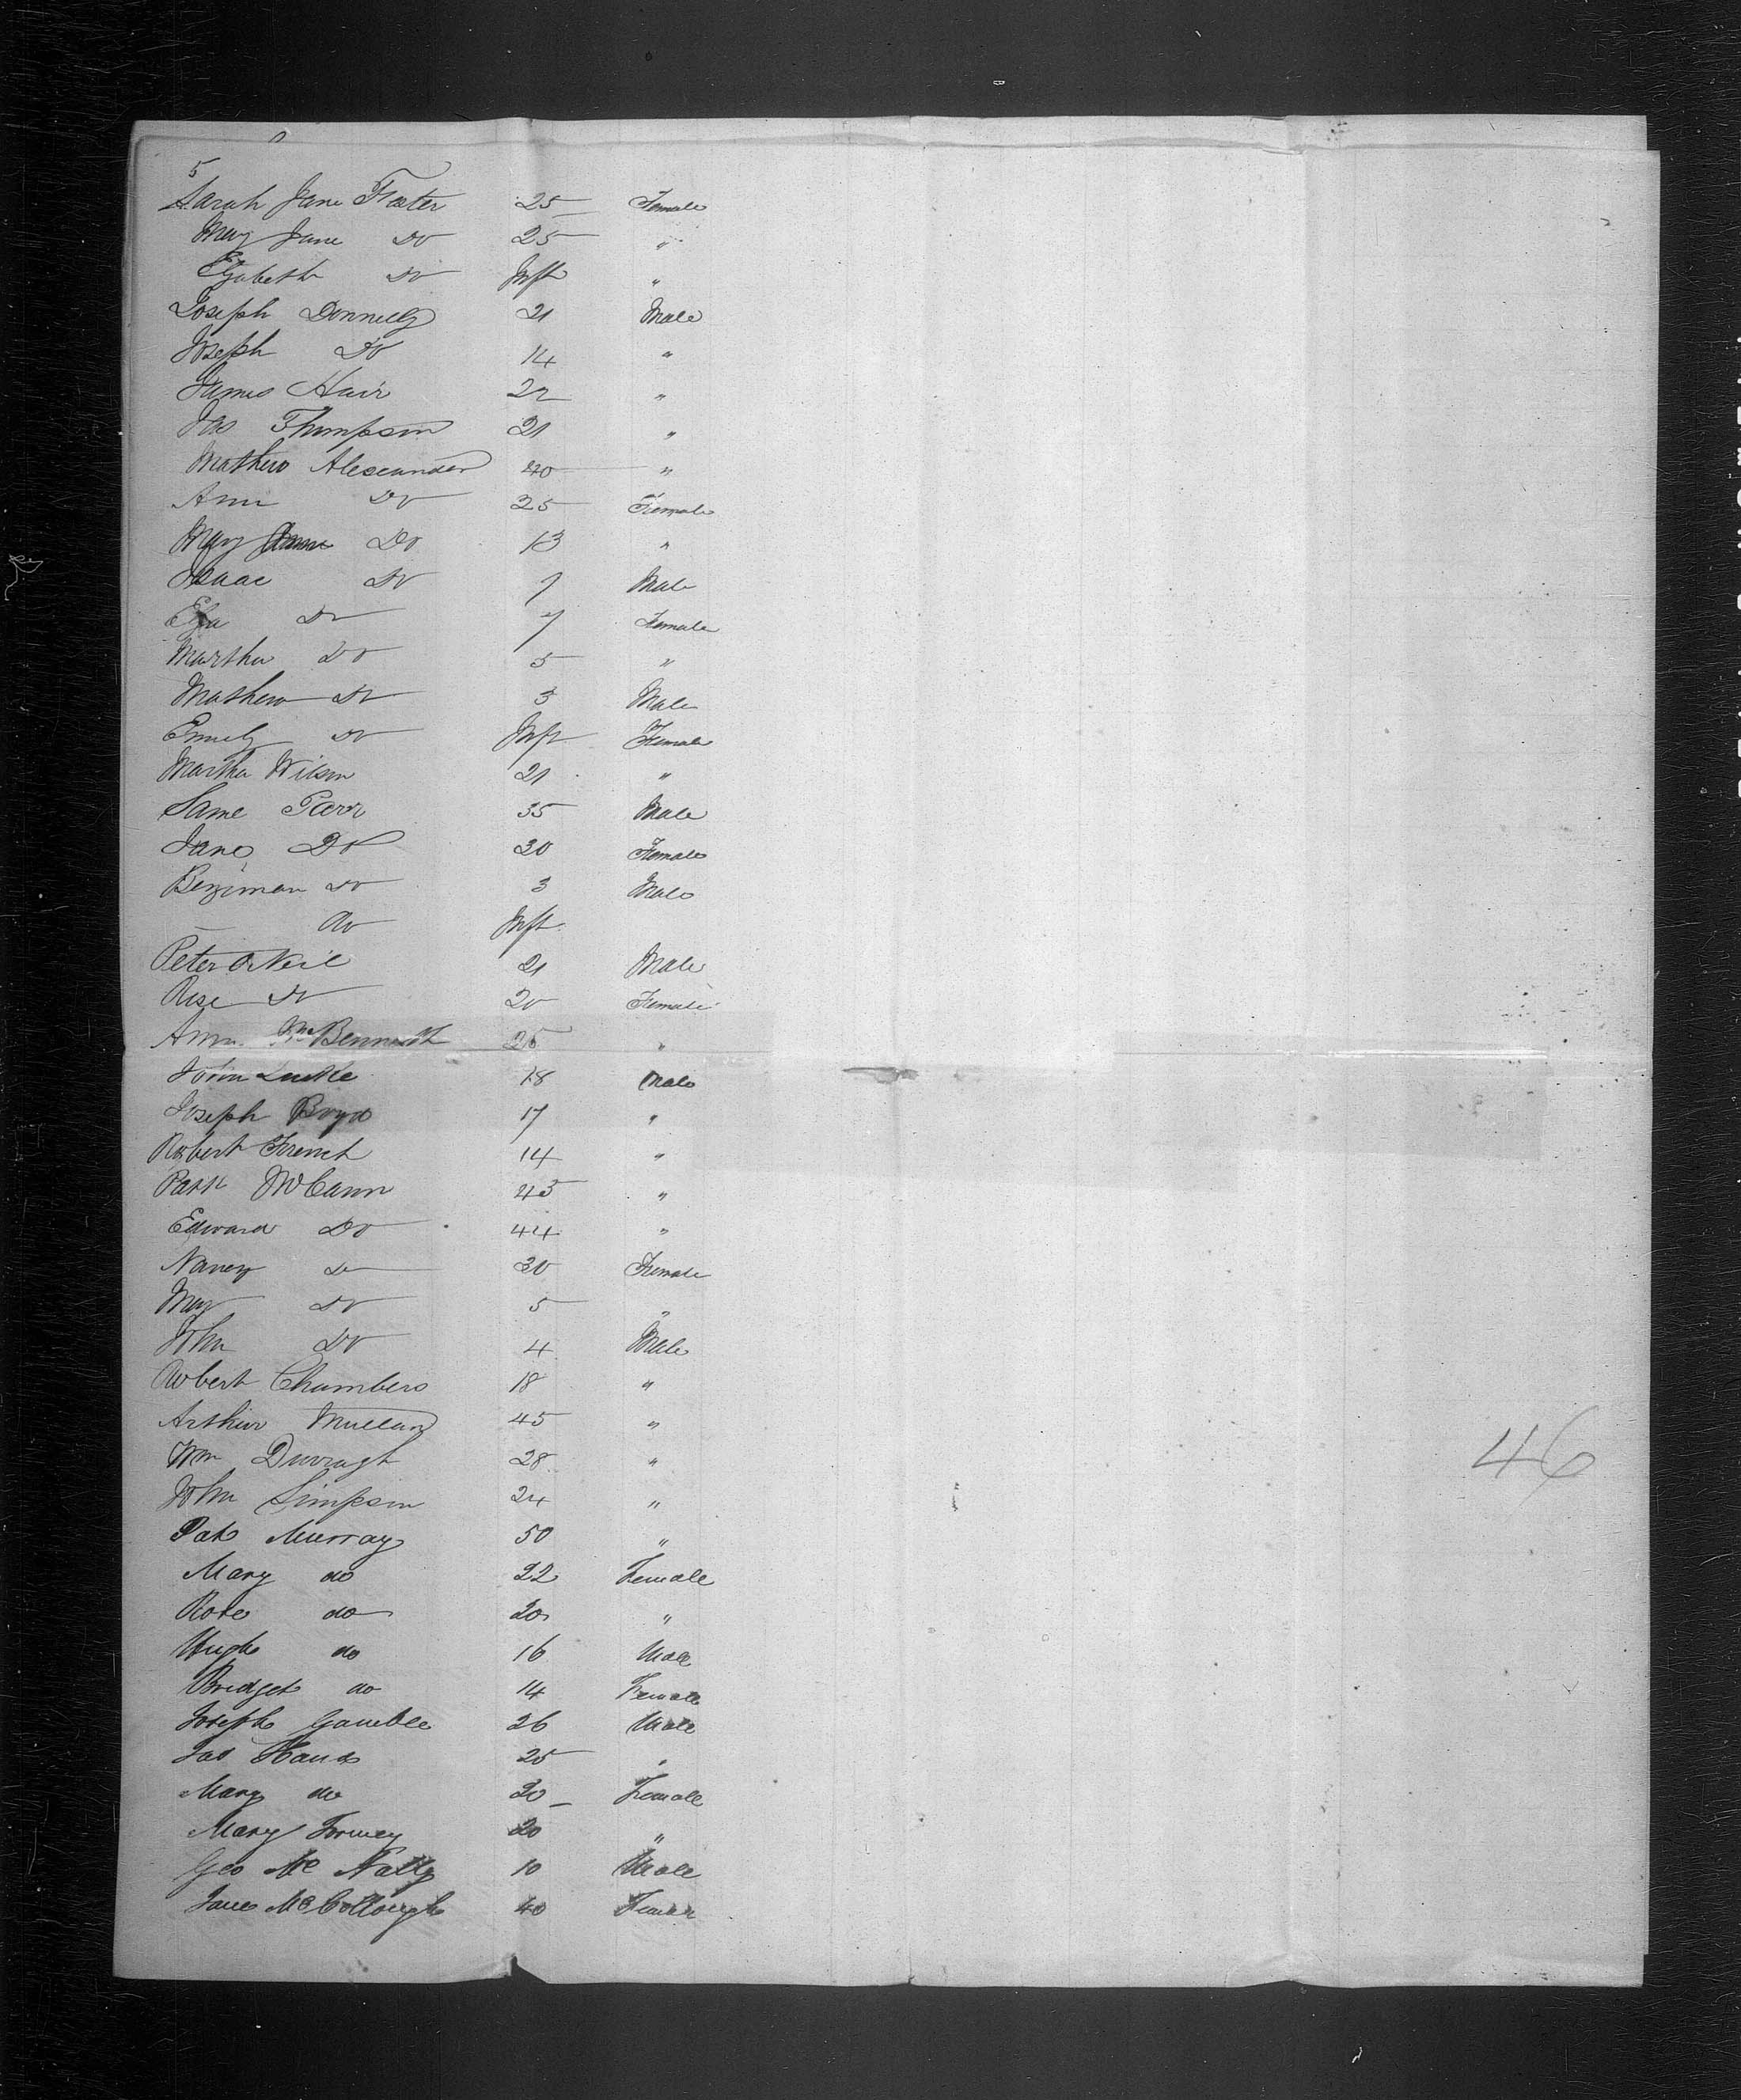 5
Sarah Jane Foster 25 Female
Mary Jane Do 25 "
Elizabeth Do Inft "
Joseph Donnelly 21 Male
Joseph Do 14 "
James Hair 22 "
Jas Thompson 21 "
Mathew Alexander 40 "
Ann Do 25 Female
Mary Do 13 "
Isaac Do 9 Male
Eliza Do 7 Female
Martha Do 5 "
Mathew Do 3 Male
Emely Do Inft Female
Martha Wilson 21 "
Same Parr 35 Male
Jane Do 30 Female
Benjiman Do 3 Male
— do Inft
Peter O'Neil 21 Male
Rose Do 20 Female
Ann 25 "
John Luckie 18 Male
Joseph Boyd 17 "
Robert French 14 "
Patk McCann 45 "
Edward Do 44 "
Nancy Do 30 Female
Mary Do 5 "
John Do 4 Male
Robert Chambers 18 "
Arthur Mullan 45 "
Wm Durragh 28 "
John Simpson 24 "
Pat Murray 50 "
Mary do 22 Female
Rose do 20 "
Hugh do 16 Male
Bridget do 14 Female
Joseph Gamble 26 Male
Jas Hand 25 "
Mary do 30 Female
Mary Formey 20 "
Geo Mc Nally 10 Male
Jane McCollough 40 Female
46